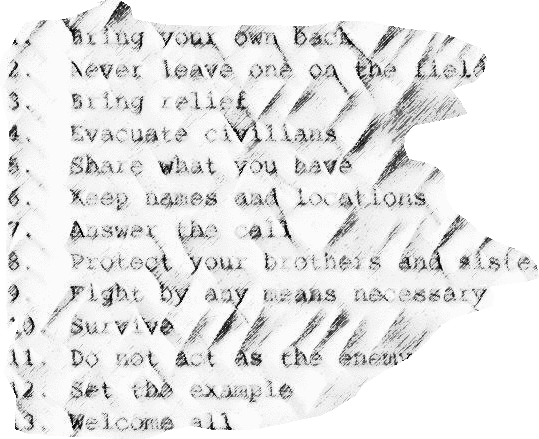 1. Bring your own back
2. Never leave one on the field
3. Bring relief
4. Evacuate civilians
5. Share what you have
6. Keep names and locations
7. Answer the call
8. Protect your brothers and siste
9. Fight by any means necessary
10. Survive
11. Do not act as the enemy
12. Set the example
13. Welcome all